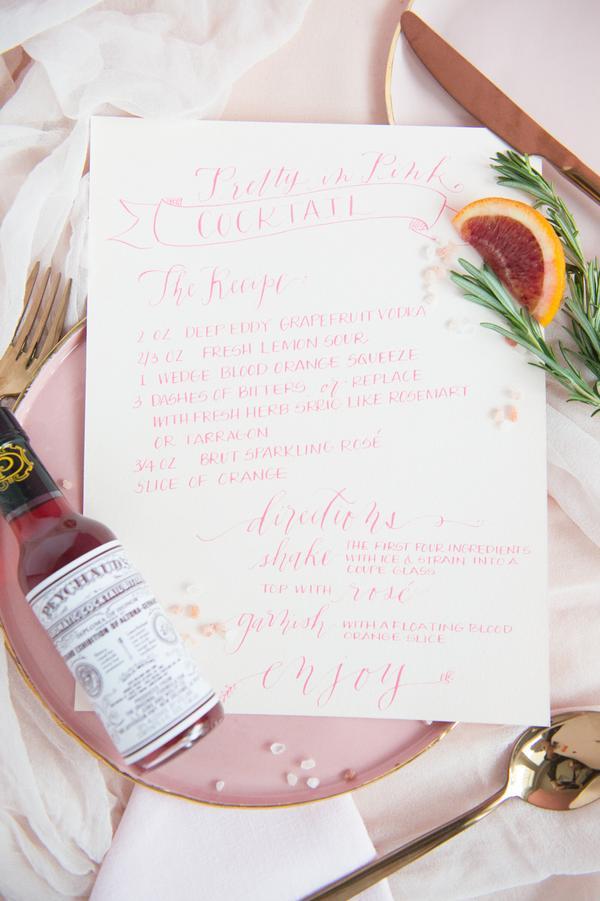 Pretty in Pink
COCKTAIL
The Recipe:
2 OZ DEEP EDDY GRAPEFRUIT VODKA
2/3 OZ FRESH LEMON SOUR
1 WEDGE BLOOD ORANGE SQUEEZE
3 DASHES OF BITTERS or REPLACE
WITH FRESH HERB SRRIG LIKE ROSEMART
OR TARRAGON
3/4 OZ BRUT SPARKLING ROSÉ
SLICE OF ORANGE
directions
shake THE FIRST FOUR INGREDIENTS
WITH ICE & STRAIN INTO A
COUPE GLASS
TOP WITH rosé
garnish WITH A FLOATING BLOOD
ORANGE SLICE
enjoy
PEYCHAUD'S
AROMATIC COCKTAIL BITTERS